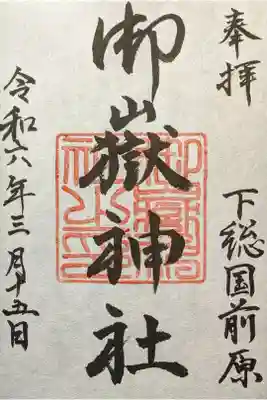 奉拝
下総国前原
御嶽神社
令和六年三月十五日